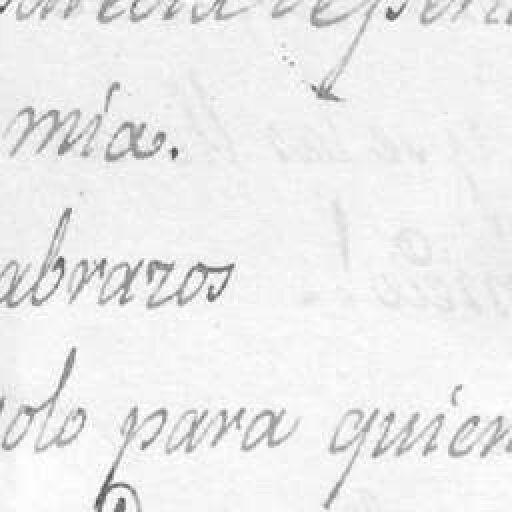 mía.
abrazos
solo para quien